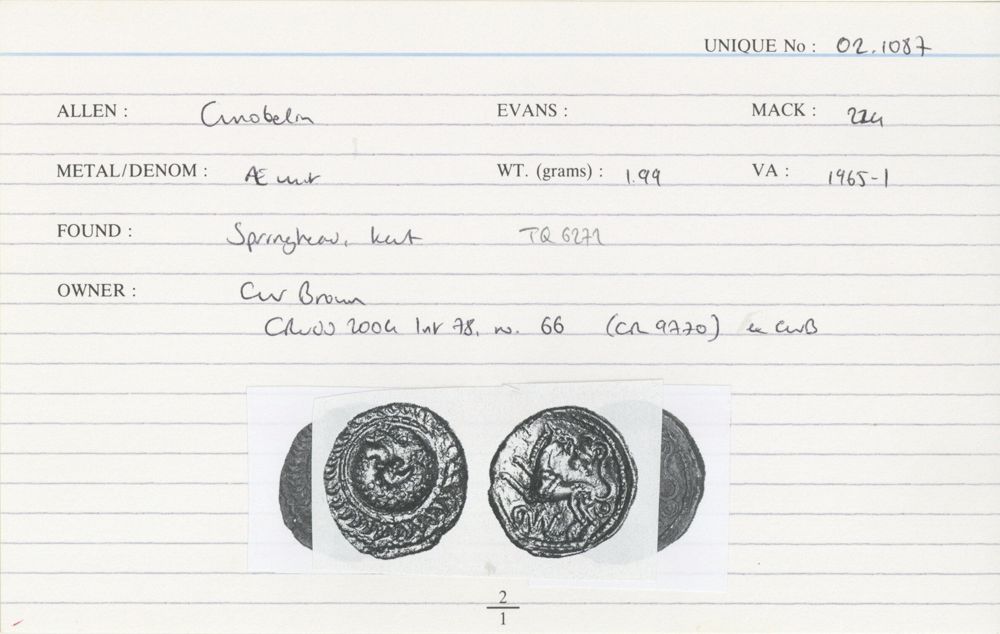 UNIQUE No : 02.1087
ALLEN : Cunobelin EVANS : MACK : 224
METAL/DENOM : Æ unit WT. (grams) : 1.99 VA : 1965-1
FOUND : Springhead, Kent TQ 6272
OWNER : CW Brown
2004 lot 78, no. 66 (CR 9770) ex CWB
2
1